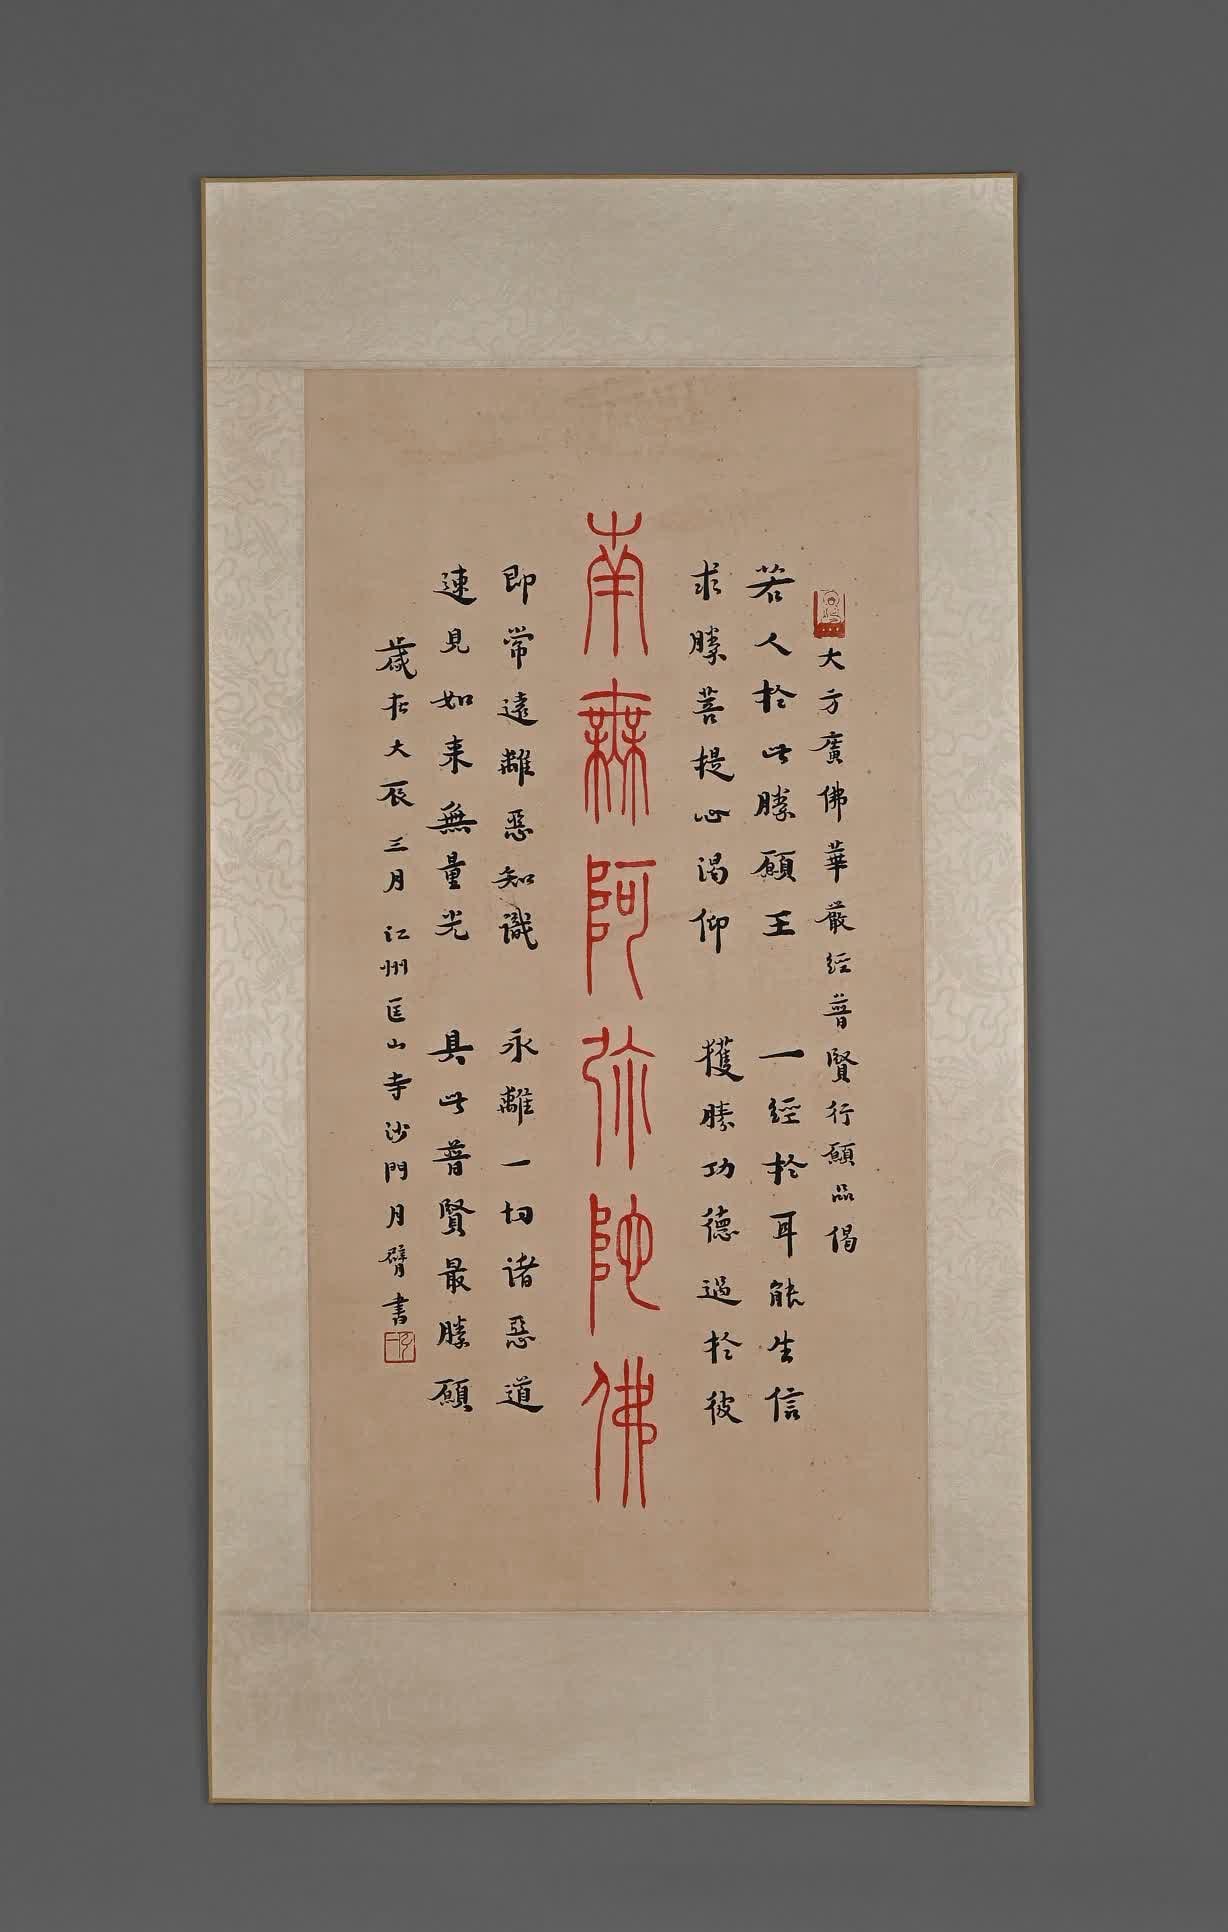 大方廣佛華嚴經普賢行願品偈
若人於此勝願王 一經於耳能生信
求勝菩提心渴仰 獲勝功德過於彼
南無阿彌陀佛
即常遠離惡知識 永離一切諸惡道
速見如來無量光 具此普賢最勝願
歲在大辰三月江州匡山寺沙門月臂書